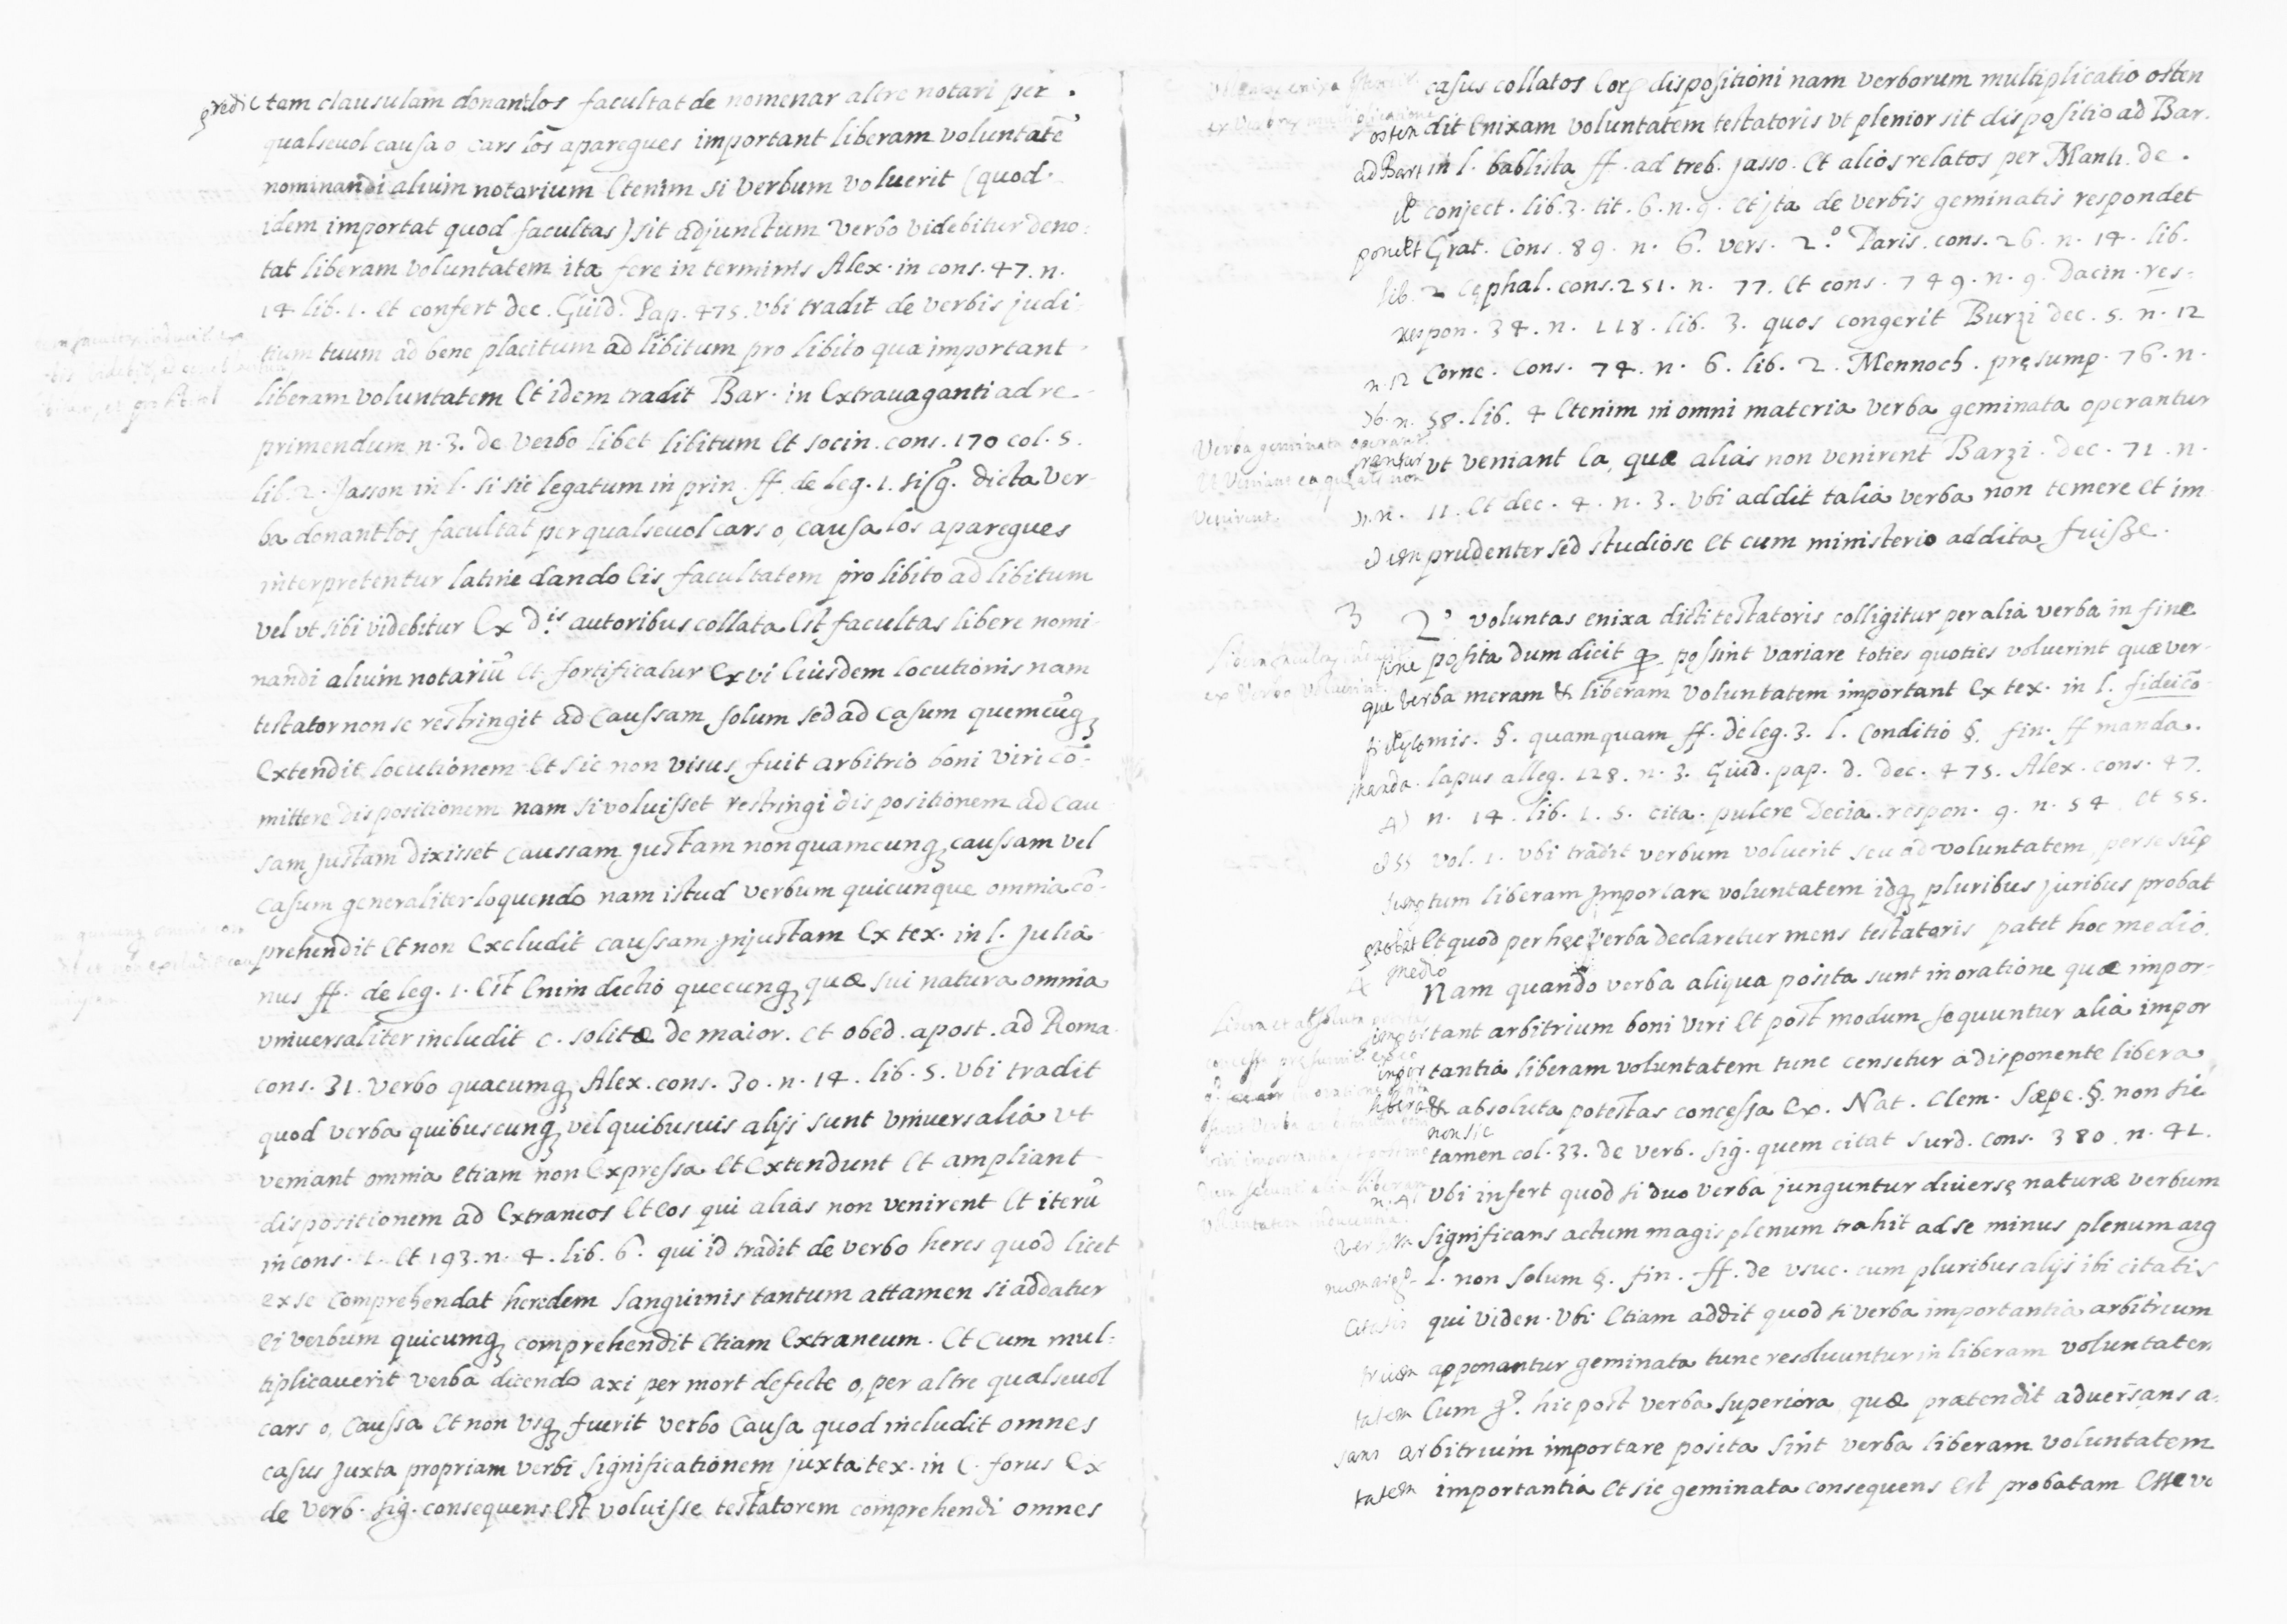 tam clausulam donant los facultat de nomenar altre notari per
qualseuol causa o cars los aparegues important liberam voluntatē
nominandi alium notarium Etenim si verbum voluerit (quod
idem importat quod facultas) sit adjunctum verbo videbitur deno
tat liberam voluntatem ita fere in terminis Alex. in cons. 47. n.
14. lib. 1. et confert dec. Guid. Pap. 475. vbi tradit de verbis judi
tium tuum ad bene placitum ad libitum pro libito qua important
liberam voluntatem Et idem tradit Bar. in Extrauaganti ad re-
primendum n. 3. de verbo libet libitum Et socin. cons. 170 col. 5.
lib. 2. Jasson in l. si sic legatum in prin. ff. de leg. 1. si dicta ver-
ba donant los facultat per qualseuol cars o, causa los aparegues
interpretentur latine dando Eis facultatem pro libito ad libitum
vel vt sibi videbitur Ex d.is autoribus collata Est facultas libere nomi-
nandi alium notariū Et fortificatur Ex vi Eiusdem locutionis nam
testator non se restringit ad Caussam solum sed ad casum quemcūq
Extendit locutionem Et sic non visus fuit arbitrio boni viri cō-
mittere dispositionem nam si voluisset restringi dispositionem ad cau
sam justam dixisset caussam justam non quamcunq caussam vel
Casum generaliter loquendo nam istud verbum quicunque omnia cō-
prehendit Et non Excludit caussam injustam Ex tex. in l. Julia-
nus ff. de leg. 1. Est Enim dictio quecunq quæ sui natura omnia
vniuersaliter includit c. solitæ de maior. et obed. apost. ad Roma
cons. 31. verbo quacumq Alex. cons. 30. n. 14. lib. 5. vbi tradit
quod verba quibuscunq vel quibusuis alijs sunt vniuersalia vt
veniant omnia Etiam non Expressa Et Extendunt Et ampliant
dispositionem ad Extraneos Et Eos qui alias non venirent Et iterū
in cons. 1. Et 193. n. 4. lib. 6. qui id tradit de verbo heres quod licet
ex se comprehendat heredem sanguinis tantum attamen si addatur
Ei verbum quicumq comprehendit Etiam Extraneum. Et Cum mul-
tiplicauerit verba dicendo axi per mort defecte o, per altre qualseuol
cars o, Caussa Et non vsq fuerit verbo Causa quod includit omnes
casus juxta propriam verbi significationem juxta tex. in c. forus Ex
de verb. sig. consequens Est voluisse testatorem comprehendi omnes
casus collatos dispositioni nam verborum multiplicatio osten
dit Enixam voluntatem testatoris vt plenior sit dispositio ad Bar.
in l. bablista ff. ad treb. Jasso. Et alios relatos per Mant. de
conject. lib. 3. tit. 6. n. 9. Et jta de verbis geminatis respondet
Grat. Cons. 89. n. 6. vers. 2.º Paris. cons. 26. n. 14. lib.
2 Cephal. cons. 251. n. 77. Et cons. 749. n. 9. Dacin. res-
pon. 34. n. 118. lib. 3. quos congerit Burzi dec. 5. n. 12
Corne. Cons. 74. n. 6. lib. 2. Mennoch. pręsump. 76. n.
58. lib. 4 Etenim in omni materia verba geminata operantur
vt veniant Ea, quæ alias non venirent Barzi. dec. 71. n.
11. Et dec. 4. n. 3. vbi addit talia verba non temere Et im
prudenter sed studiose Et cum ministerio addita fuisse.
3 2º voluntas enixa dicti testatoris colligitur per alia verba in fine
posita dum dicit possint variare toties quoties voluerint quæ ver-
ba meram & liberam voluntatem important Ex tex. in l. fideicō-
mis. §. quamquam ff. de leg. 3. l. Conditio §. fin. ff manda.
lapus alleg. 128. n. 3. Guid. pap. d. dec. 475. Alex. cons. 47.
n. 14. lib. 1. 5. cita. pulcre Decia. respon. 9. n. 54. Et 55.
vol. 1. vbi tradit verbum voluerit seu ad voluntatem per se sūp
tum liberam jmportare voluntatem idq pluribus juribus probat
Et quod per hęc verba declaretur mens testatoris patet hoc medio.
4 Nam quando verba aliqua posita sunt in oratione quæ impor-
tant arbitrium boni viri Et post modum sequuntur alia impor
tantia liberam voluntatem tunc censetur a disponente libera
& absoluta potestas concessa Ex. Nat. Clem. Sæpe. §. non sic
tamen col. 33. de verb. sig. quem citat surd. cons. 380. n. 41.
vbi infert quod si duo verba junguntur diuersę naturæ verbum
significans actum magis plenum trahit ad se minus plenum arg
l. non solum §. fin. ff. de vsuc. cum pluribus alijs ibi citatis
qui viden. vbi Etiam addit quod si verba importantia arbitrium
apponantur geminata tunc resoluuntur in liberam voluntatem
Cum hic post verba superiora quæ prætendit aduersans a-
arbitrium importare posita sint verba liberam voluntatem
importantia Et sic geminata consequens Est probatam Esse vo